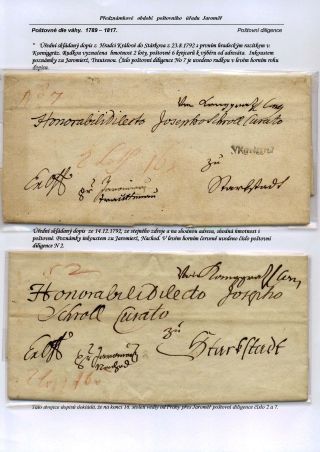 Předznámkové období poštovního úřadu Jaroměř
Poštovné dle váhy. 1789 – 1817.
Poštovní diligence
* Úřední skládaný dopis z Hradci Králové do Stárkova z 23.8.1792 s prvním hradeckým razítkem v
Konniggrätz. Rudkou vyznačena hmotnost 2 loty, poštovné 6 krejcarů k výběru od adresáta. Inkoustem
poznámky za Jaromierz, Trautenau. Číslo poštovní diligence No 7 je uvedeno rudkou v levém horním rohu
dopisu.
Von Konggratz
Honorabili Dilecto Josepho Schroll Curato
zu
Starkstadt
Ex Offo
Úřední skládaný dopis ze 14.12.1792, ze stejného zdroje a na shodnou adresu, shodná hmotnost i
poštovné. Poznámky inkoustem za Jaromierz, Nachod. V levém horním červeně uvedeno číslo poštovní
diligence N 2.
Von Konggratz
Honorabili Dilecto Josepho
Schroll Curato
zu
Starkstadt
Ex Offo
Nachod
Tato dvojice dopisů dokládá, že na konci 18. století vedly od Prahy přes Jaroměř poštovní diligence číslo 2 a 7.